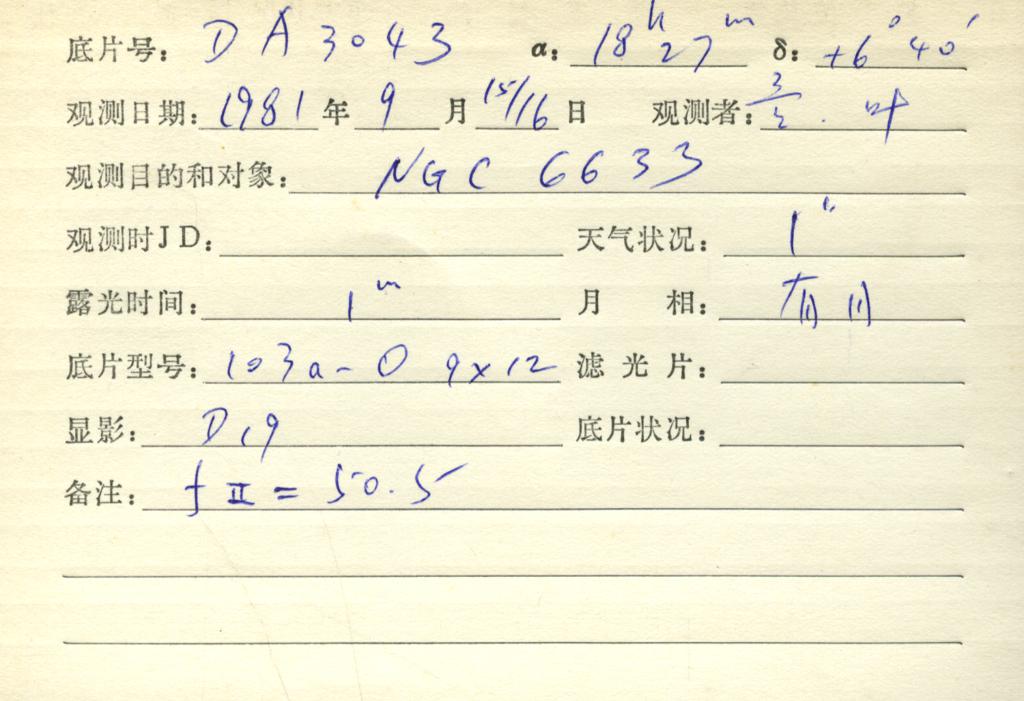 底片号: DA3043 α: 18h27m δ: +6°40′
观测日期: 1981年9月15/16日 观测者: . 叶
观测目的和对象: NGC 6633
观测时JD: 天气状况: 1"
露光时间: 1m 月 相: 有月
底片型号: 103a-O 9×12 滤光片:
显影: D19 底片状况:
备注: f II = 50.5